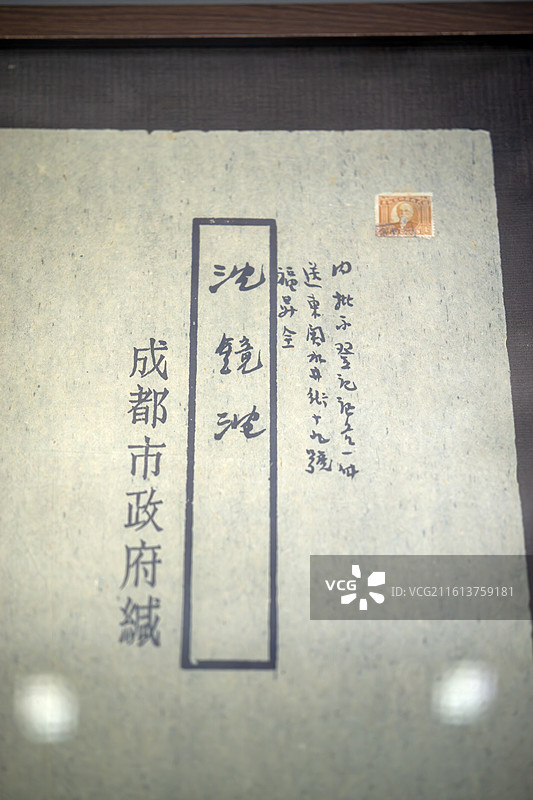 内批示登記証壱一册
送東門水井街十九號
福昇全
沈鏡池
成都市政府緘
VCG
ID: VCG211613759181